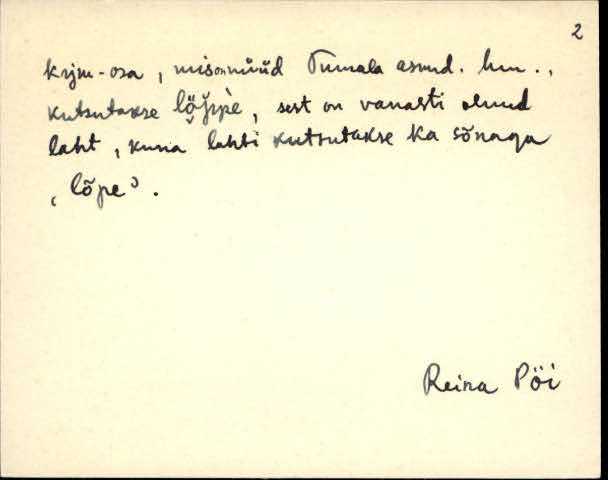 2
krjm-osa, mis on nüüd Tumala asund. hm.,
kutsutakse lö̬ppè, sest on vanasti olnud
laht, kuna lahti kutsutakse ka sõnaga
„lõpe”.
Reina Pöi